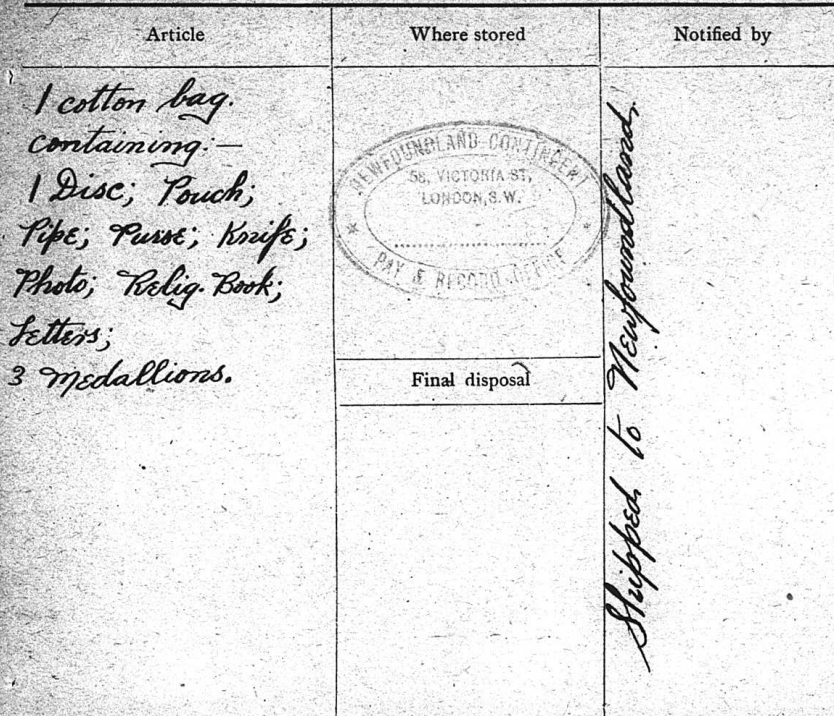 Article
Where stored
Notified by
1 cotton bag.
containing:—
1 Disc; Pouch;
Pipe; Purse; Knife;
Photo; Relig. Book;
Letters;
3 Medallions.
NEWFOUNDLAND CONTINGENT
58, VICTORIA ST,
LONDON, S.W.
PAY & RECORD OFFICE
Final disposal
Shipped to Newfoundland.